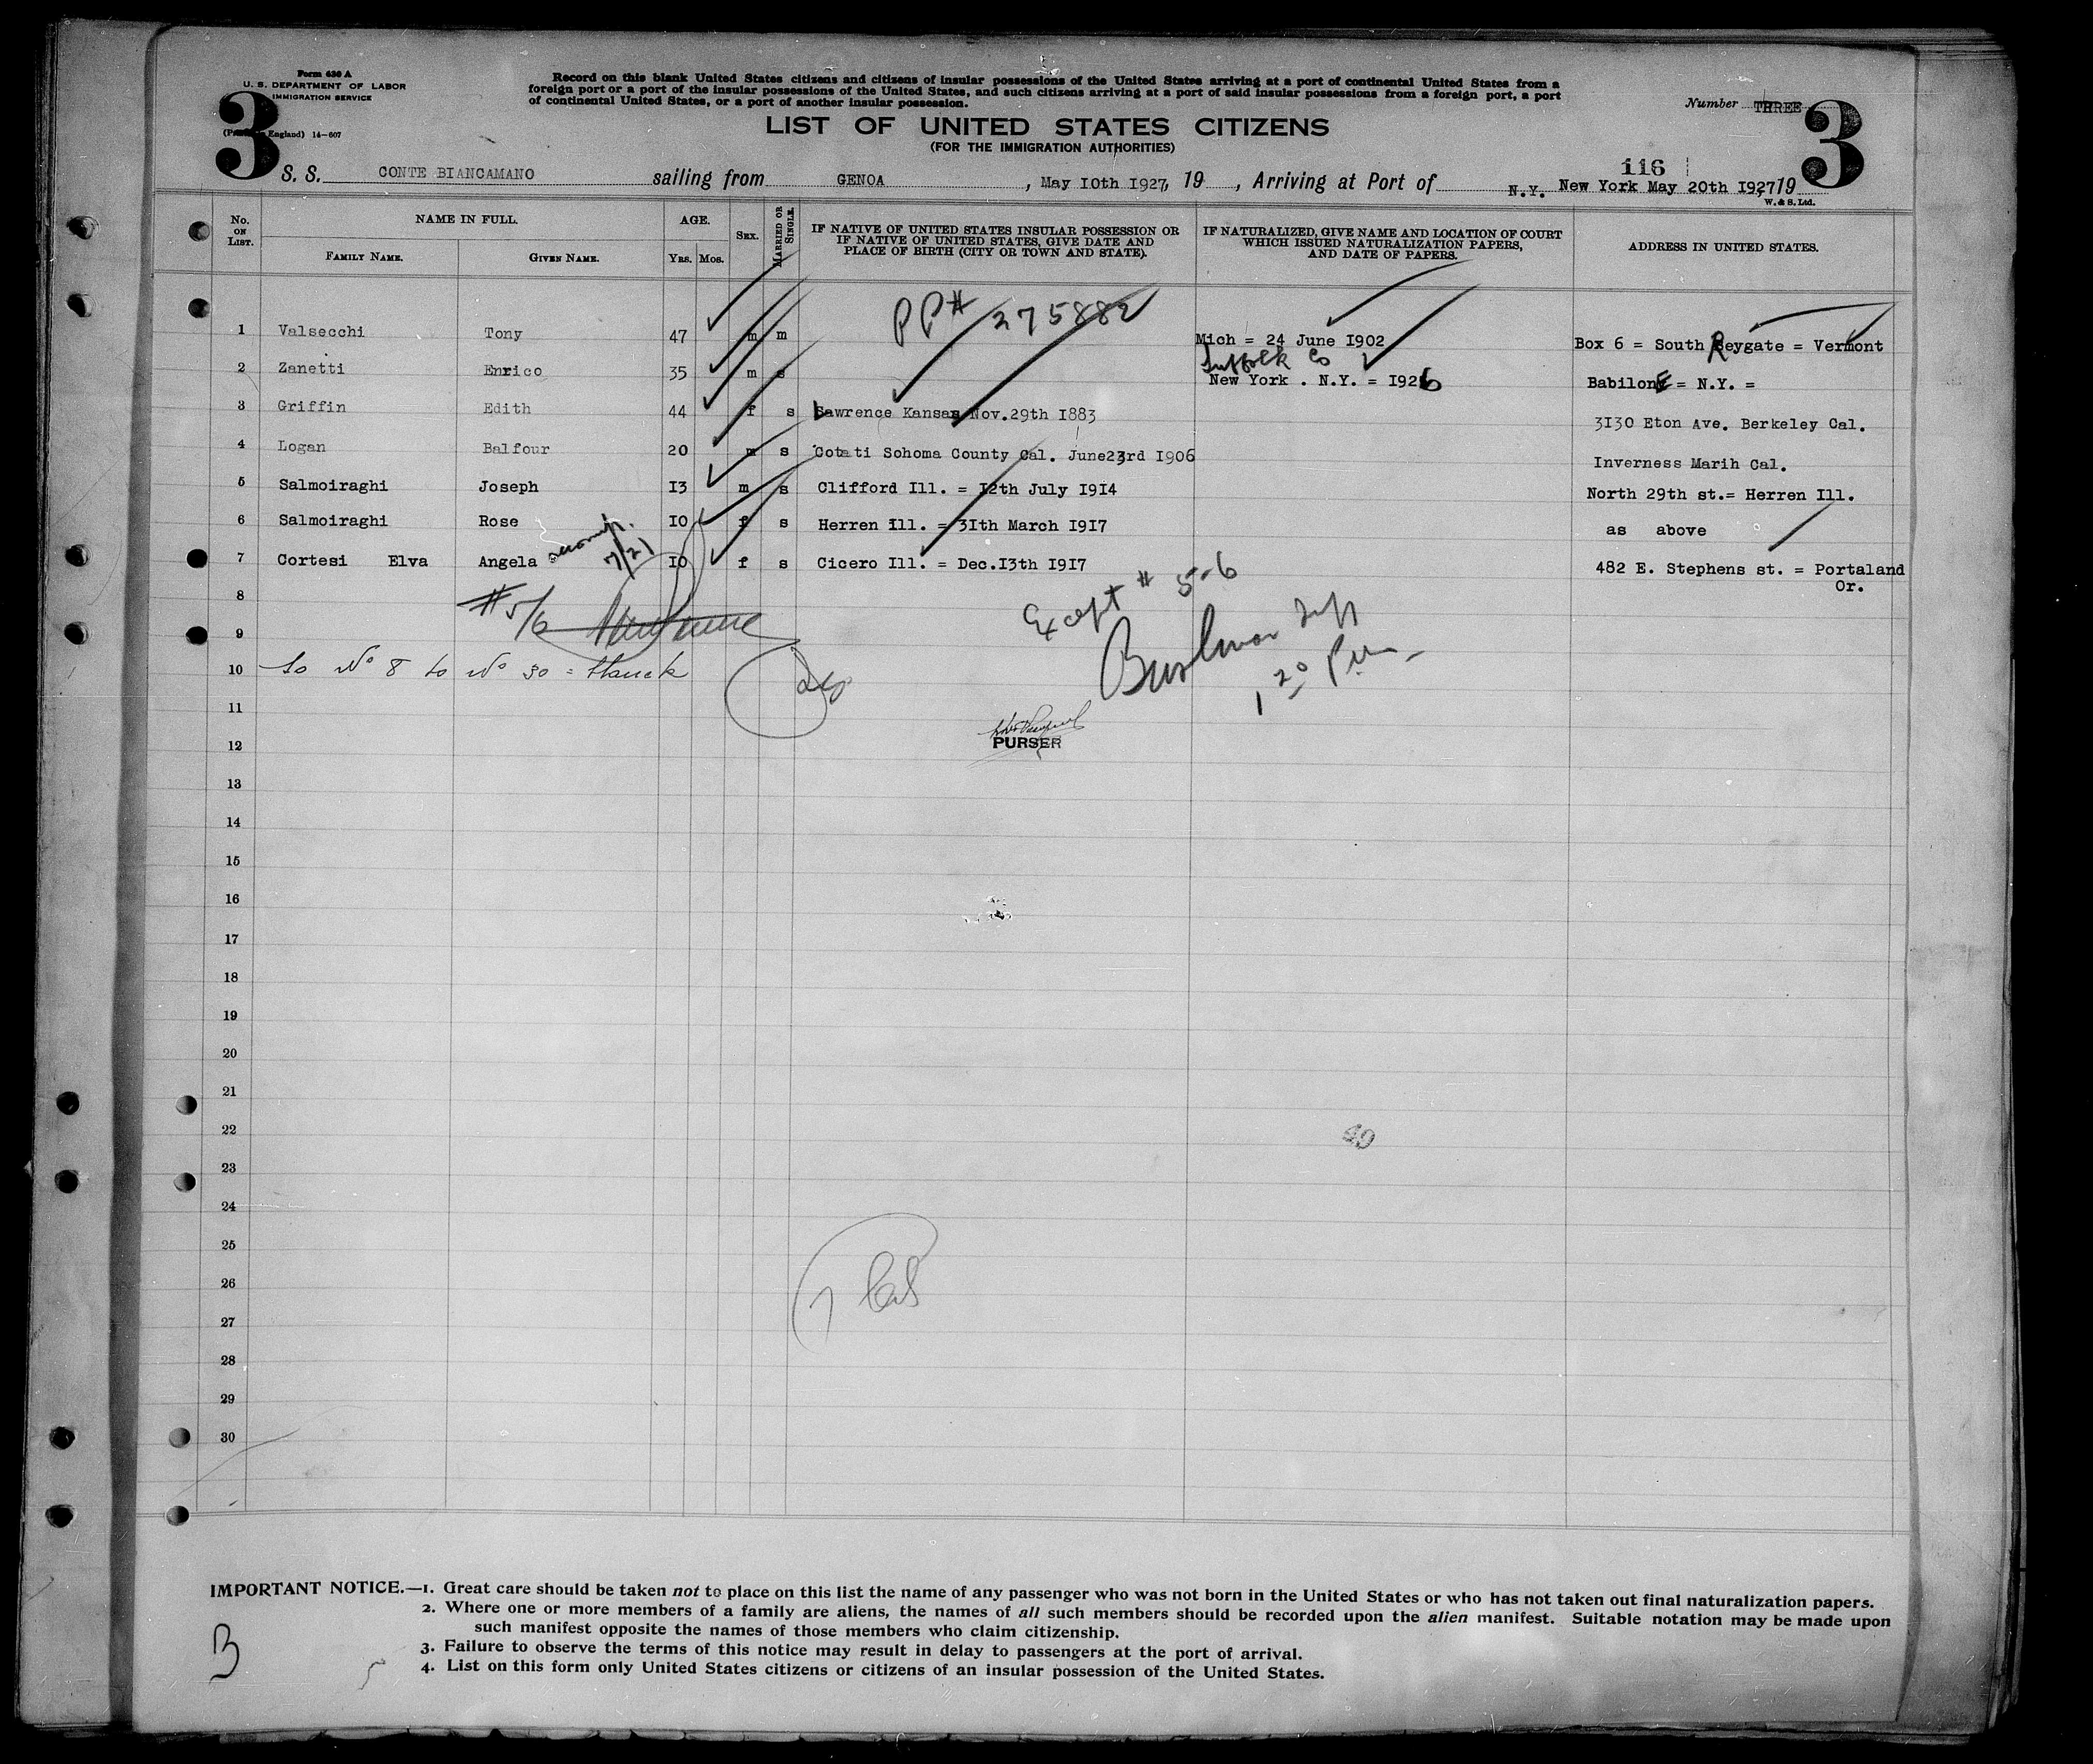 Form 630 A
U. S. DEPARTMENT OF LABOR
IMMIGRATION SERVICE
England) 14—607
3
Record on this blank United States citizens and citizens of insular possessions of the United States arriving at a port of continental United States from a
foreign port or a port of the insular possessions of the United States, and such citizens arriving at a port of said insular possessions from a foreign port, a port
of continental United States, or a port of another insular possession.
Number THREE
3
LIST OF UNITED STATES CITIZENS
(FOR THE IMMIGRATION AUTHORITIES)
116
S. S. CONTE BIANCAMANO sailing from GENOA , May I0th I927, 19 , Arriving at Port of N.Y. New York May 20th I927, 19
W. & S. Ltd.
No. ON LIST. NAME IN FULL. AGE. SEX. MARRIED OR SINGLE. IF NATIVE OF UNITED STATES INSULAR POSSESSION OR IF NATIVE OF UNITED STATES, GIVE DATE AND PLACE OF BIRTH (CITY OR TOWN AND STATE). IF NATURALIZED, GIVE NAME AND LOCATION OF COURT WHICH ISSUED NATURALIZATION PAPERS, AND DATE OF PAPERS. ADDRESS IN UNITED STATES.
FAMILY NAME. GIVEN NAME. YRS. MOS.
PP# 275882
1 Valsecchi Tony 47 m m Mich = 24 June I902 Box 6 = South Reygate = Vermont
Suffolk Co
2 Zanetti Enrico 35 m s New York . N.Y. = I926 BabilonE = N.Y. =
3 Griffin Edith 44 f s Lawrence Kansas Nov.29th I883 3I30 Eton Ave. Berkeley Cal.
4 Logan Balfour 20 m s Cotati Sohoma County Cal. June23rd I906 Inverness Marih Cal.
5 Salmoiraghi Joseph I3 m s Clifford Ill. = I2th July I9I4 North 29th st.= Herren Ill.
6 Salmoiraghi Rose I0 f s Herren Ill. = 3Ith March I9I7 as above
7 Cortesi Elva Angela 7/21 I0 f s Cicero Ill. = Dec.I3th I9I7 482 E. Stephens st. = Portaland
Or.
8
#5/6
Except # 5-6
9
10 So Nº 8 to Nº 30 = blanck
11
PURSER
12
13
14
15
16
17
18
19
20
21
22
40
23
24
25
26
27
28
29
30
IMPORTANT NOTICE.—1. Great care should be taken not to place on this list the name of any passenger who was not born in the United States or who has not taken out final naturalization papers.
2. Where one or more members of a family are aliens, the names of all such members should be recorded upon the alien manifest. Suitable notation may be made upon
such manifest opposite the names of those members who claim citizenship.
3. Failure to observe the terms of this notice may result in delay to passengers at the port of arrival.
4. List on this form only United States citizens or citizens of an insular possession of the United States.
B